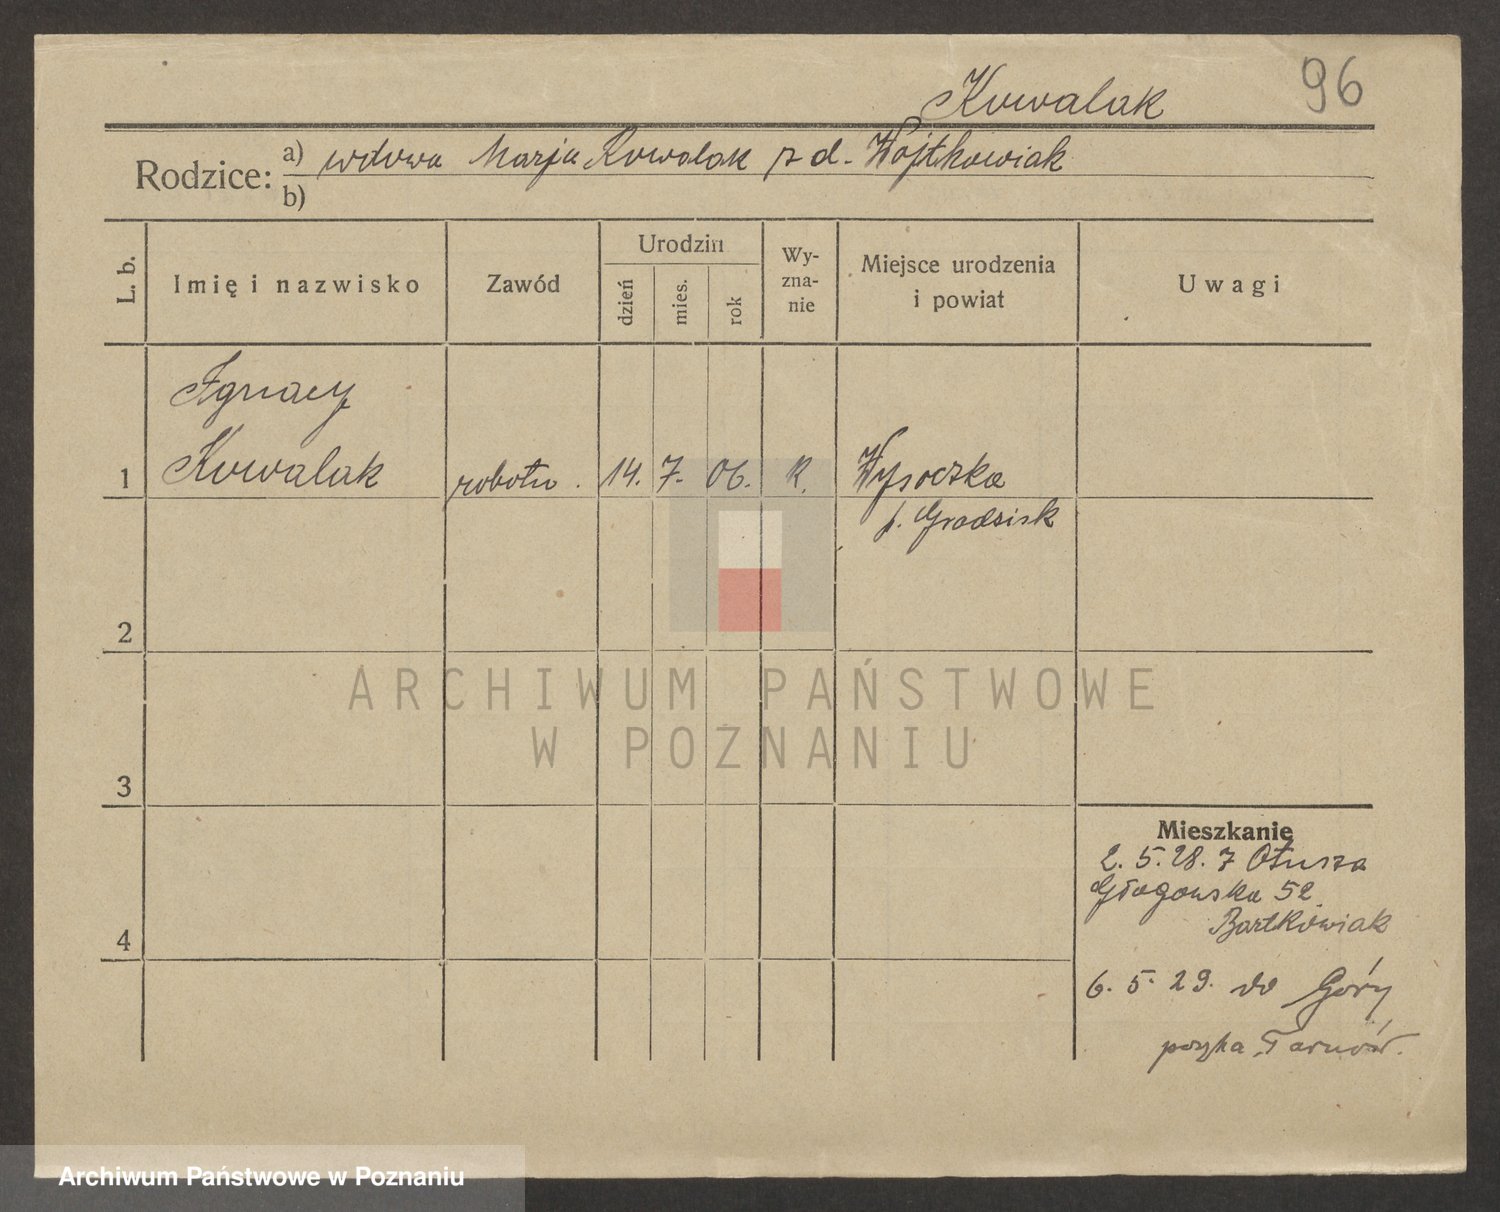 96
Kowalak
Rodzice: a) wdowa Marja Kowalak z d. Wojtkowiak
b)
L. b.
Imię i nazwisko
Zawód
Urodzin
dzień
mies.
rok
Wy-
zna-
nie
Miejsce urodzenia
i powiat
Uwagi
Ignacy
1 Kowalak robotn. 14. 7. 06. K. Wysoczka
p. Grodzisk
2
3
4
Mieszkanie
2. 5. 28. z Otusza
Głogowska 52
Bartkowiak
6. 5. 29. do Góry
Tarnów.
ARCHIWUM PAŃSTWOWE
W POZNANIU
Archiwum Państwowe w Poznaniu